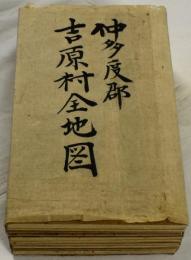 仲多度郡
吉原村全地図